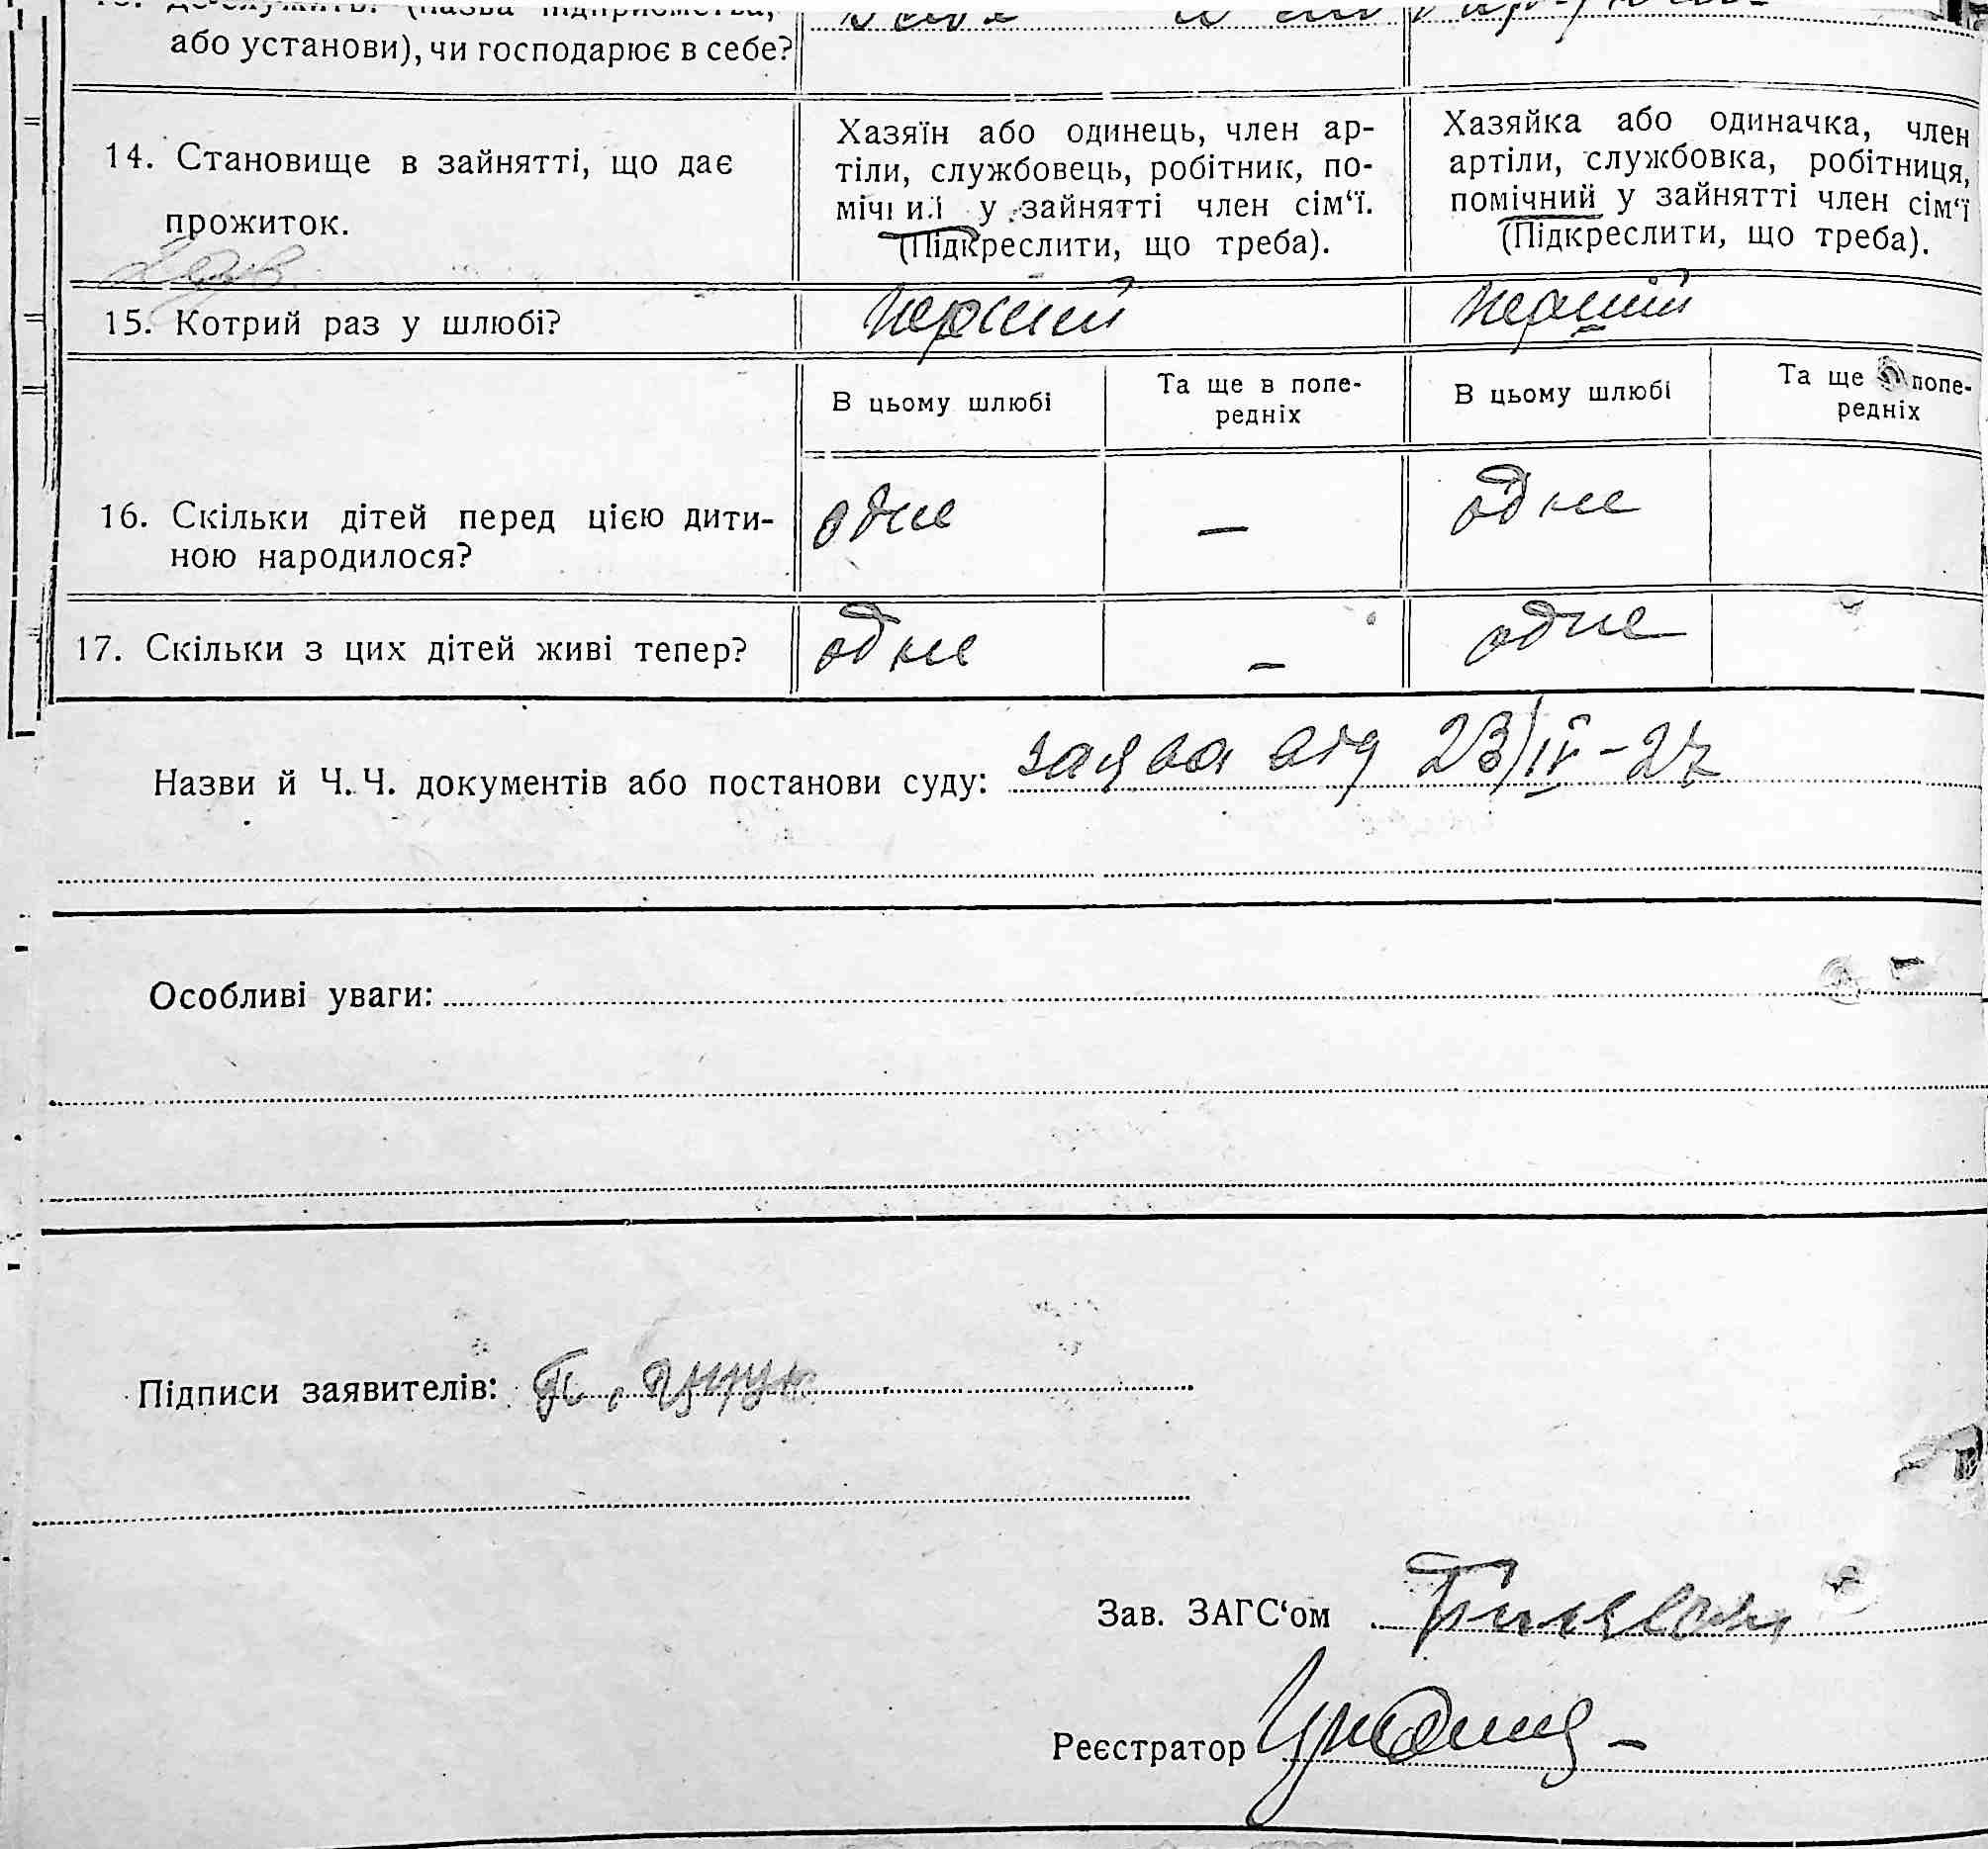 або установи), чи господарює в себе?
14. Становище в зайнятті, що дає
прожиток.
Хазяїн або одинець, член ар-
тіли, службовець, робітник, по-
мічний у зайнятті член сім‘ї.
(Підкреслити, що треба).
Хазяйка або одиначка, член
артіли, службовка, робітниця,
помічний у зайнятті член сім‘ї
(Підкреслити, що треба).
15. Котрий раз у шлюбі?
перший
перший
В цьому шлюбі
Та ще в попе-
редніх
В цьому шлюбі
Та ще попе-
редніх
16. Скільки дітей перед цією дити-
ною народилося?
одне
—
одне
17. Скільки з цих дітей живі тепер?
одне
—
одне
Назви й Ч. Ч. документів або постанови суду: заява від 23/IV-27
Особливі уваги:
Підписи заявителів:
Зав. ЗАГС‘ом
Реєстратор